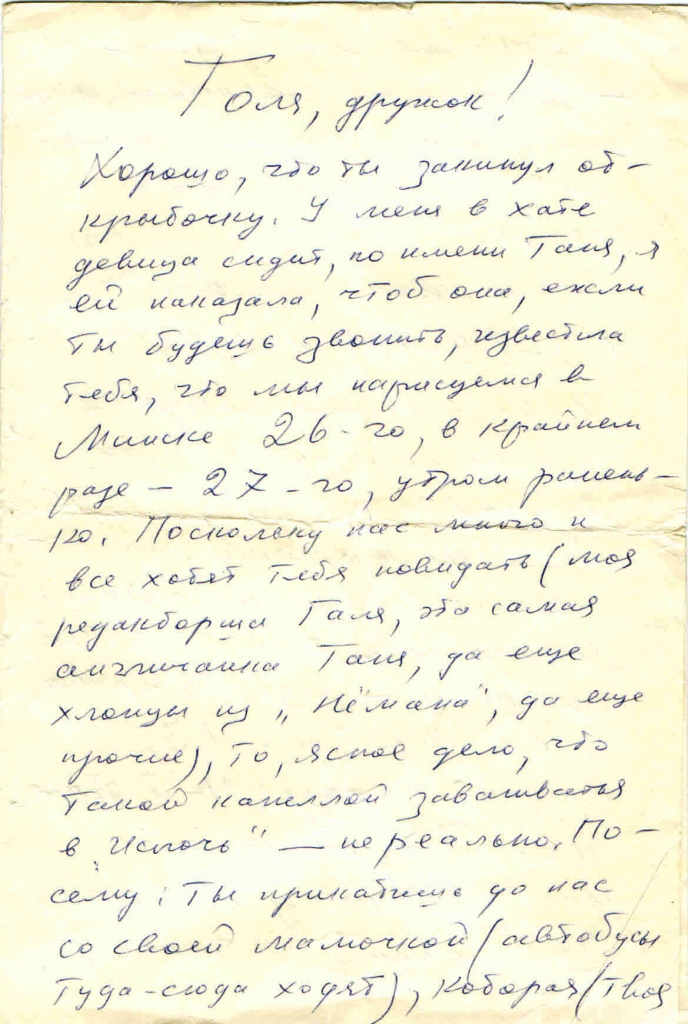 Толя, дружок!
Хорошо, что ты закинул от-
крыточку. У меня в хате
девица сидит, по имени Таня, я
ей наказала, чтоб она, ежели
ты будешь звонить, известила
тебя, что мы нарисуемся в
Минске 26-го, в крайнем
разе – 27-го, утром ранень-
ко. Поскольку нас много и
все хотят тебя повидать (моя
редакторша Галя, эта самая
англичанка Таня, да еще
хлопцы из „Нёмана", да еще
прочие), то, ясное дело, что
такой капеллой заваливаться
в „Ислочь" – нереально. По-
сему: ты прикатишь до нас
со своей мамочкой (автобусы
туда-сюда ходят), которая (твоя